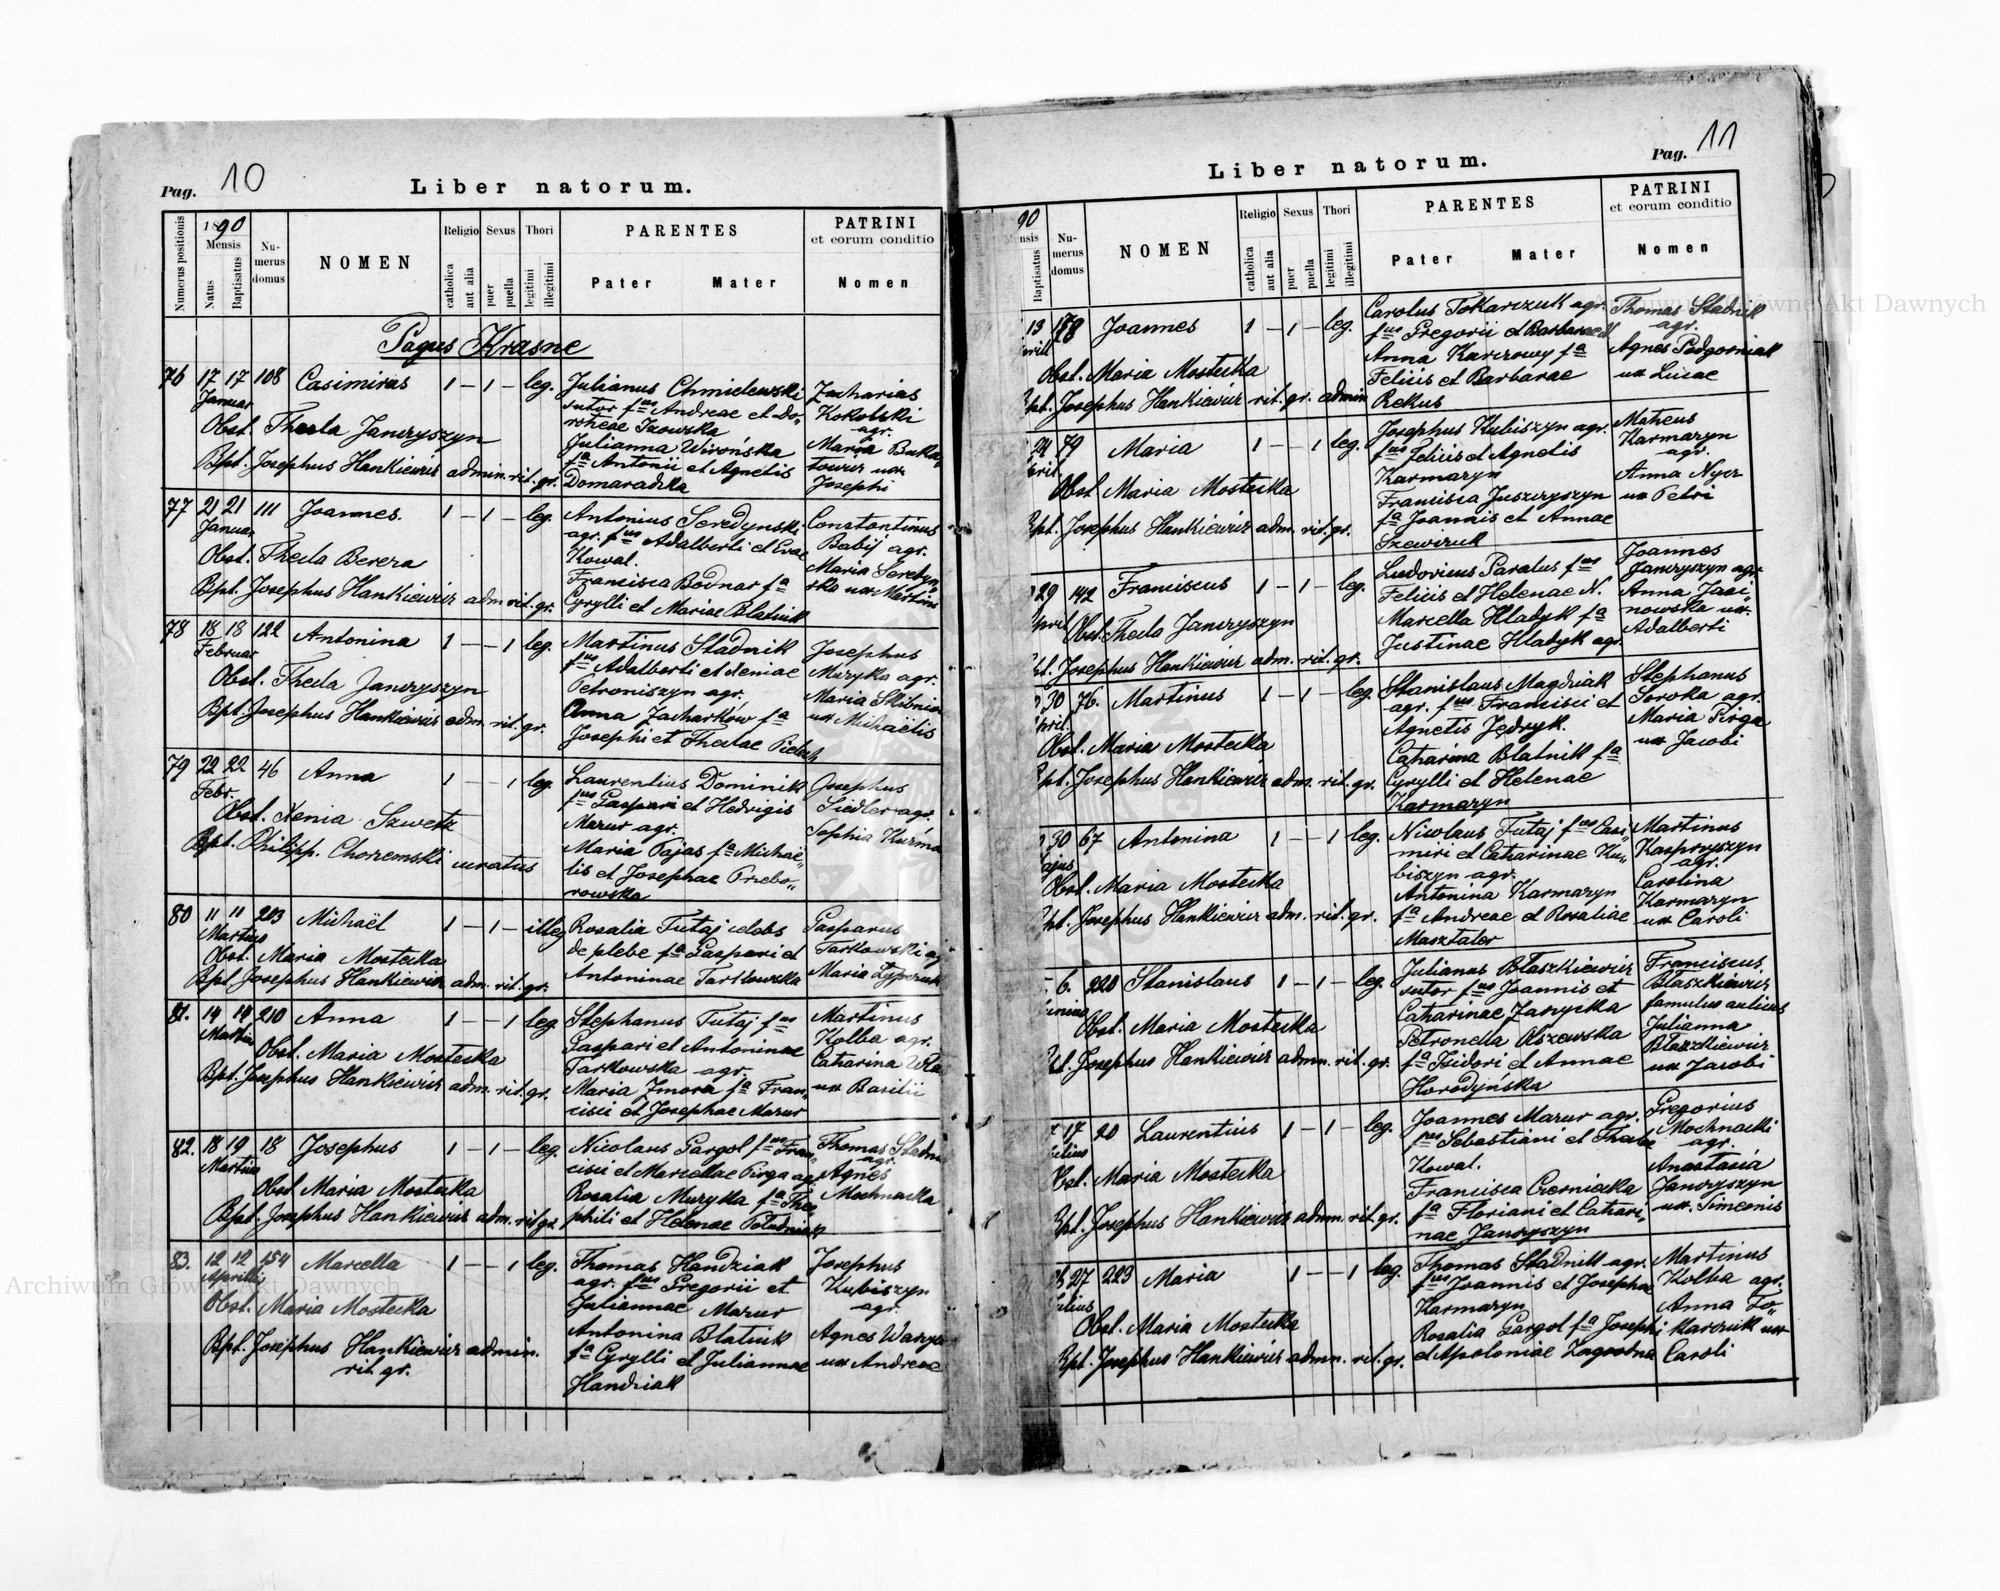 Pag. 10
Liber natorum.
Numerus positionis
1890
Mensis
Natus
Baptisatus
Nu-
merus
domus
NOMEN
Religio
catholica
aut alia
Sexus
puer
puella
Thori
legitimi
illegitimi
PARENTES
Pater Mater
PATRINI
et eorum conditio
Nomen
Pagus Krasne
76 17 17 108 Casimirus 1 – 1 – leg. Julianus Chmielewski Zacharias
Januar sutor fus Andreae et Do- Kokolski
Obst. Thecla Janczyszyn rotheae Tzowska agr.
Julianna Wirońska Maria
Bpt. Josephus Hankiewicz admin. rit. gr. fa Antonii et Agnetis ux.
Domaradzka Josephi
77 21 21 111 Joannes. 1 – 1 – leg. Antonius Seredynski Constantinus
Januar agr. fus Adalberti et Evae Babij agr.
Obst. Thecla Berera Kowal. Maria Seredyn-
Francisca Bodnar fa ska ux. Martini
Bpt. Josephus Hankiewicz adm. rit. gr. Cyrylli et Mariae Blatnik
78 18 18 122 Antonina 1 – – 1 leg. Martinus Stadnik Josephus
Februar fus Adalberti et Xeniae Muzyka agr.
Obst. Thecla Janczyszyn Petroniszyn agr. Maria
Bpt. Josephus Hankiewicz adm. rit. gr. Anna Zacharków fa ux Michaëlis
Josephi et Theclae
79 22 22 46 Anna 1 – – 1 leg. Laurentius Dominik Josephus
Febr. fus Gaspari et Hedvigis Siedler agr.
Obst. Xenia Szwetz Mazur agr. Sophia
Bpt. Philipp. Chorzemski curatus Maria Pajas fa Michaë-
lis et Josephae Przebo-
rowska
80 11 11 203 Michaël 1 – 1 – illeg. Rosalia Tutaj coelebs Gasparus
Martius de plebe fa Gaspari et Tarkowski agr.
Obst. Maria Mostecka Antoninae Tarkowska Maria
Bpt. Josephus Hankiewicz adm. rit. gr.
81. 14 14 210 Anna 1 – – 1 leg. Stephanus Tutaj fus Martinus
Martius Gaspari et Antoninae Kolba agr.
Obst. Maria Mostecka Tarkowska agr. Catharina
Bpt. Josephus Hankiewicz adm. rit. gr. Maria Zmora fa Fran- ux Basilii
cisci et Josephae Mazur
82. 18 19 18 Josephus 1 – 1 – leg. Nicolaus Gargol fus Fran- Thomas
Martius cisci et Marcellae Pirga agr. agr.
Obst. Maria Mostecka Rosalia Muzyka fa Theo- Agnes
Bpt. Josephus Hankiewicz adm. rit. gr. phili et Helenae Mochnacka
83. 12 12 154 Marcella 1 – – 1 leg. Thomas Handziak Josephus
Aprilis agr. fus Gregorii et Kubiszyn
Obst. Maria Mostecka Juliannae Mazur agr.
Antonina Blatnik Agnes
Bpt. Josephus Hankiewicz admin. fa Cyrylli et Juliannae ux Andreae
rit. gr. Handziak
Pag. 11
Liber natorum.
90
Baptisatus
Nu-
merus
domus
NOMEN
Religio
catholica
aut alia
Sexus
puer
puella
Thori
legitimi
illegitimi
PARENTES
Pater Mater
PATRINI
et eorum conditio
Nomen
13 178 Joannes 1 – 1 – leg. Carolus Tokarczuk agr. Thomas Stadnik
fus Gregorii et Barbarae agr.
Obst. Maria Mostecka Anna Karczowy fa Agnes Podgorniak
Felicis et Barbarae ux Lucae
Bpt. Josephus Hankiewicz rit. gr. admin Rekus
24 79 Maria 1 – – 1 leg. Josephus Kubiszyn agr. Matheus
fus Felicis et Agnetis Karmazyn
Obst. Maria Mostecka Karmazyn agr.
Francisca Juszczyszyn Anna Nycz
Bpt. Josephus Hankiewicz adm. rit. gr. fa Joannis et Annae ux Petri
Szewczuk
29 142 Franciscus 1 – 1 – leg. Ludovicus Paralus fus Joannes
Felicis et Helenae N. Janczyszyn agr.
Obst. Thecla Janczyszyn Marcella Hladyk fa Anna Jasi-
Justinae Hladyk agr. nowska ux.
Bpt. Josephus Hankiewicz adm. rit. gr. Adalberti
30 76. Martinus 1 – 1 – leg. Stanislaus Magdziak Stephanus
agr. fus Francisci et Soroka agr.
Obst. Maria Mostecka Agnetis Jędryk. Maria Pirga
Catharina Blatnik fa ux Jacobi
Bpt. Josephus Hankiewicz adm. rit. gr. Cyrylli et Helenae
Karmazyn
30 67 Antonina 1 – – 1 leg. Nicolaus Tutaj fus Casi- Martinus
miri et Catharinae Ku- Kasprzyszyn
Obst. Maria Mostecka biszyn agr. agr.
Antonina Karmazyn Carolina
Bpt. Josephus Hankiewicz adm. rit. gr. fa Andreae et Rosaliae Karmazyn
Masztaler ux Caroli
6. 220 Stanislaus 1 – 1 – leg. Julianus Błaszkiewicz Franciscus
sutor fus Joannis et Błaszkiewicz
Obst. Maria Mostecka Catharinae Zarycka famulus aulicus
Petronella Olszewska Julianna
Bpt. Josephus Hankiewicz admn. rit. gr. fa Isidori et Annae Błaszkiewicz
Horodyńska ux Jacobi
17 20 Laurentius 1 – 1 – leg. Joannes Mazur agr. Gregorius
fus Sebastiani et Theclae Mochnacki
Obst. Maria Mostecka Kowal. agr.
Francisca Czerniecka Anastasia
Bpt. Josephus Hankiewicz admn. rit. gr. fa Floriani et Cathari- Janczyszyn
nae Janczyszyn ux. Simeonis
27 223 Maria 1 – – 1 leg. Thomas Stadnik agr. Martinus
fus Joannis et Josephae Kolba agr.
Obst. Maria Mostecka Karmazyn Anna To-
Rosalia Gargol fa Josephi karczuk ux
Bpt. Josephus Hankiewicz admn. rit. gr. et Apoloniae Zagrobna Caroli
Archiwum Główne Akt Dawnych